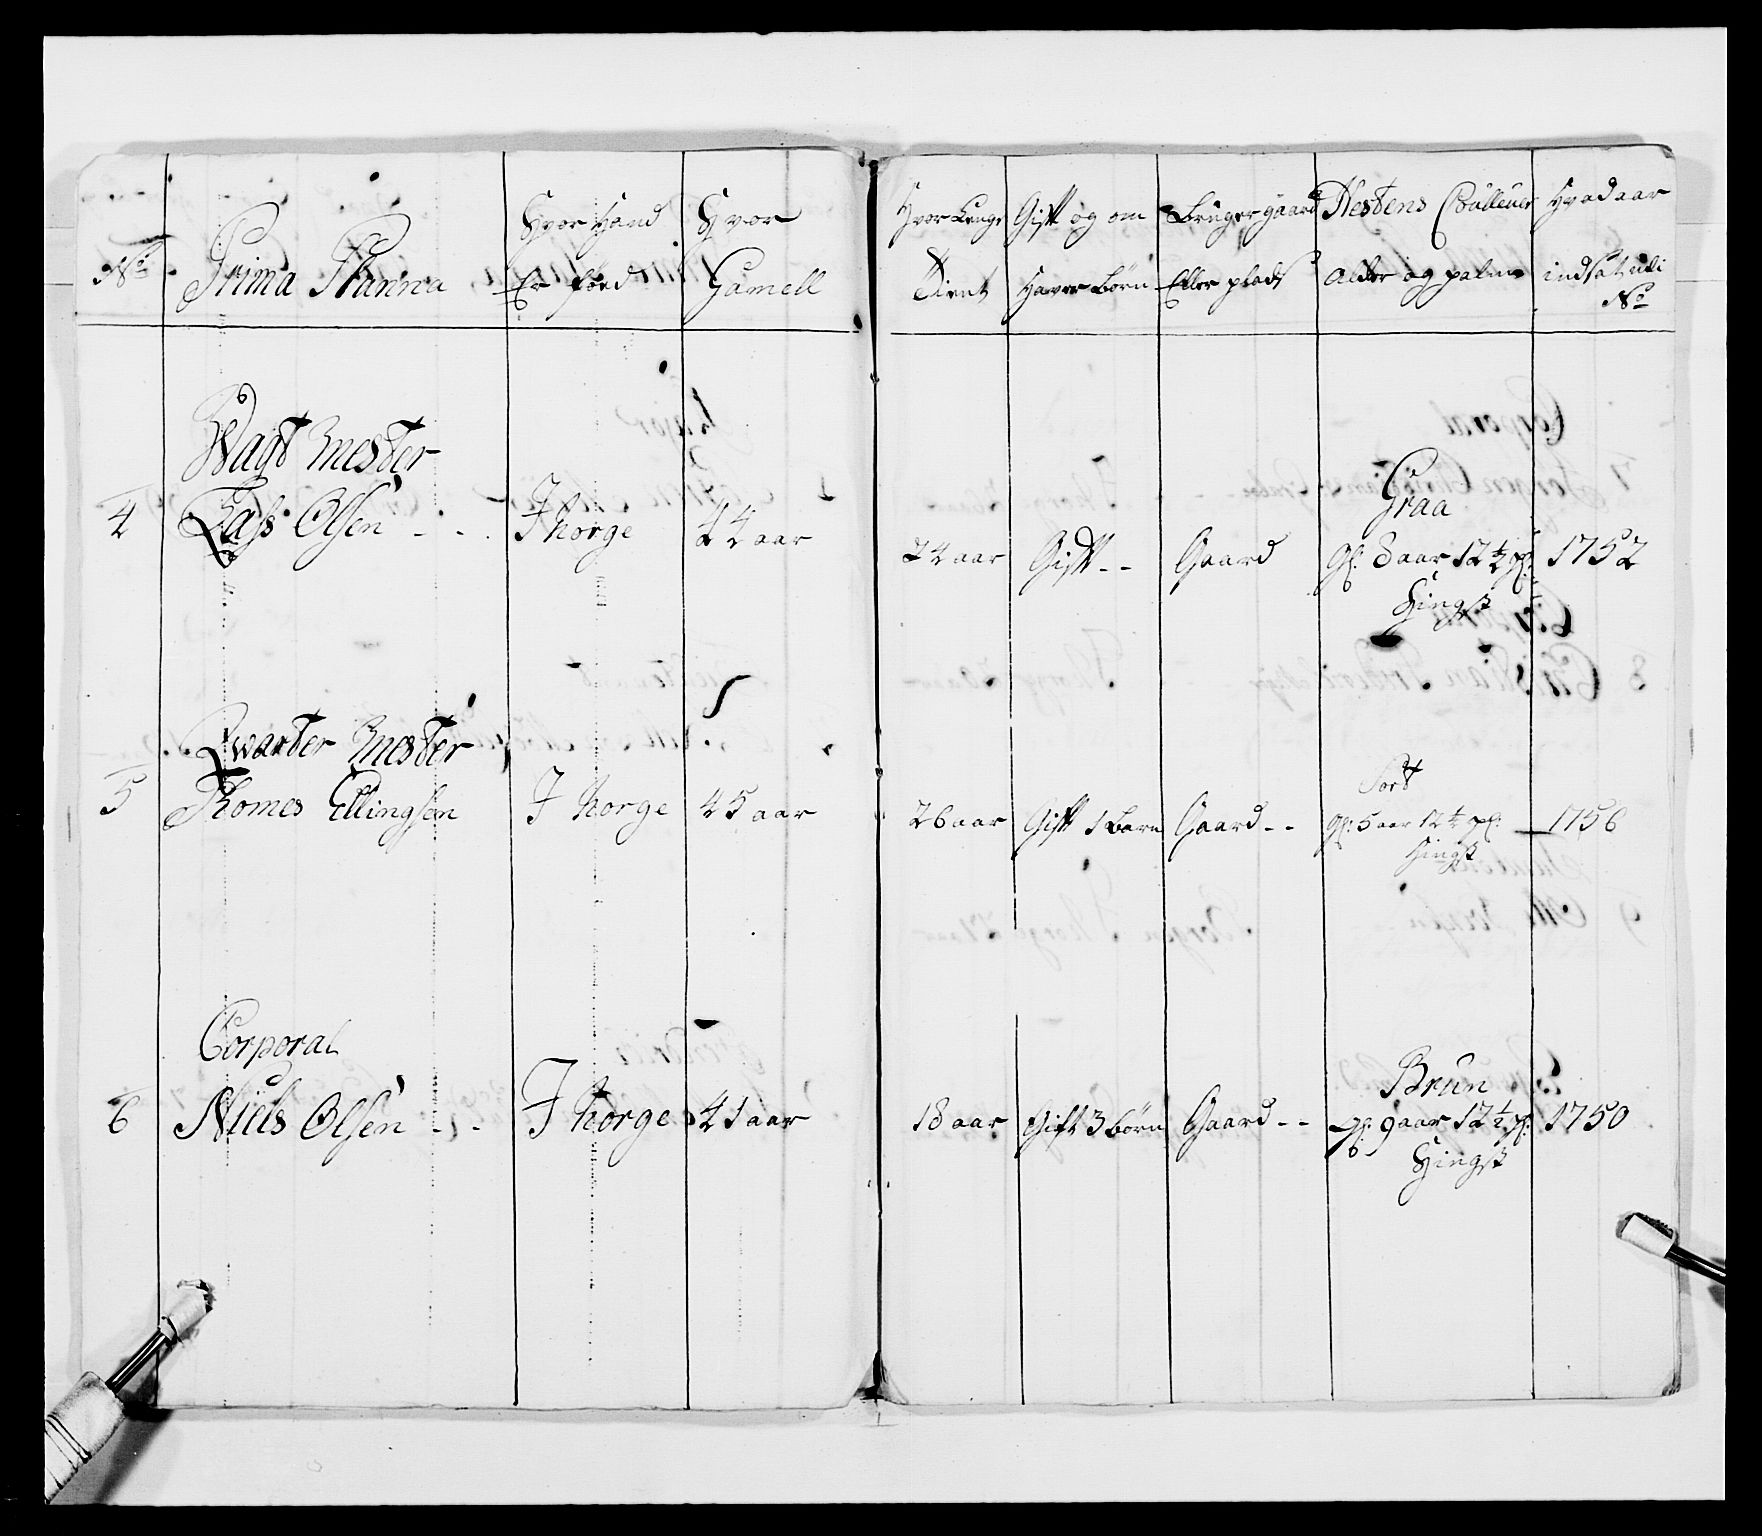 No
Prima Planna
Hvor Hand
Er fød
Hvor
Gamell
Hvor Lenge
Tient
Gift og om
Haver Børn
Bruger gaard
Eller plads
Hestens Couleur
Alder og palme
Hvad aar
indsat udi
No
Wagt Mester
4 Lass Olsen - - Norge 44 aar 24 aar Gift - - Gaard
Graa
gl: 8 aar 12 1/2 pl:
Hingst
1752
Qwarter Mester
5 Thomes Ellingsen Norge 45 aar 26 aar Gift 1 Barn Gaard - -
Sort
gl: 5 aar 12 1/2 pl:
Hingst
1756
Corporal
6 Niels Olsen - - Norge 41 aar 18 aar Gift 3 børn Gaard - -
Brun
gl: 9 aar 12 1/2 pl:
Hingst
1750